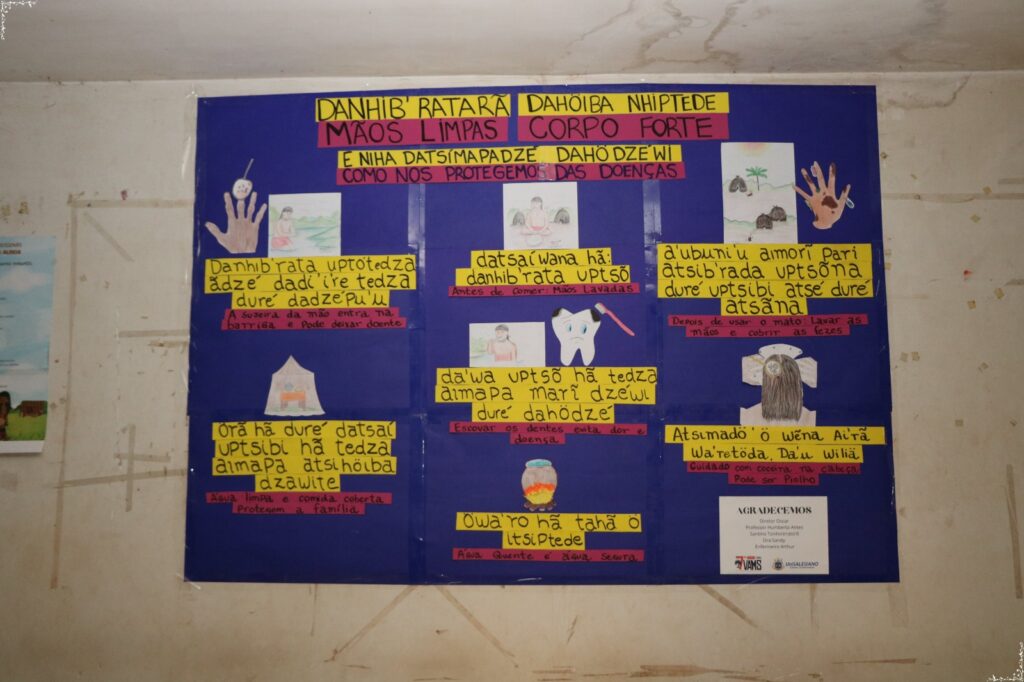 DANHIB'RATARÃ DAHÖIBA NHIPTEDE
MÃOS LIMPAS CORPO FORTE
E NIHA DATSIMAPADZÉ DAHÖDZÉ'WI
COMO NOS PROTEGEMO DAS DOENÇAS
Danhib'rata uptotedza
ãdzé dadi'ire tedza
duré dadzépu'u
A sujeira da mão entra na
barriga e Pode deixar doente
datsaíwana hã:
danhib'rata uptsõ
Antes de comer: Mãos Lavadas
a'ubuni'u aimorĩ pari
atsib'rada uptsõna
duré uptsibi atsé duré
atsãna
Depois de usar o mato: Lavar as
mãos e cobrir as fezes
Örã hã duré datsaí
uptsibi hã tedza
aimapa atsihöiba
dzawite
Água limpa e comida coberta
Protegem a família
da'wa uptsõ hã tedza
aimapa marĩ dzéwi
duré dahödzé
Escovar os dentes evita dor e
doença
Öwa'ro hã tahã õ
itsiptede
Água Quente é água segura
Atsimadö'ö wẽna Ai'rã
Wa'retöda. Da'u wiliã
Cuidado com coceira na cabeça
Pode ser Piolho
AGRADECEMOS
Diretor Oscar
Professor Humberto
Dra Sandy
Enfermeiro Arthur
VAMS
UniSALESIANO